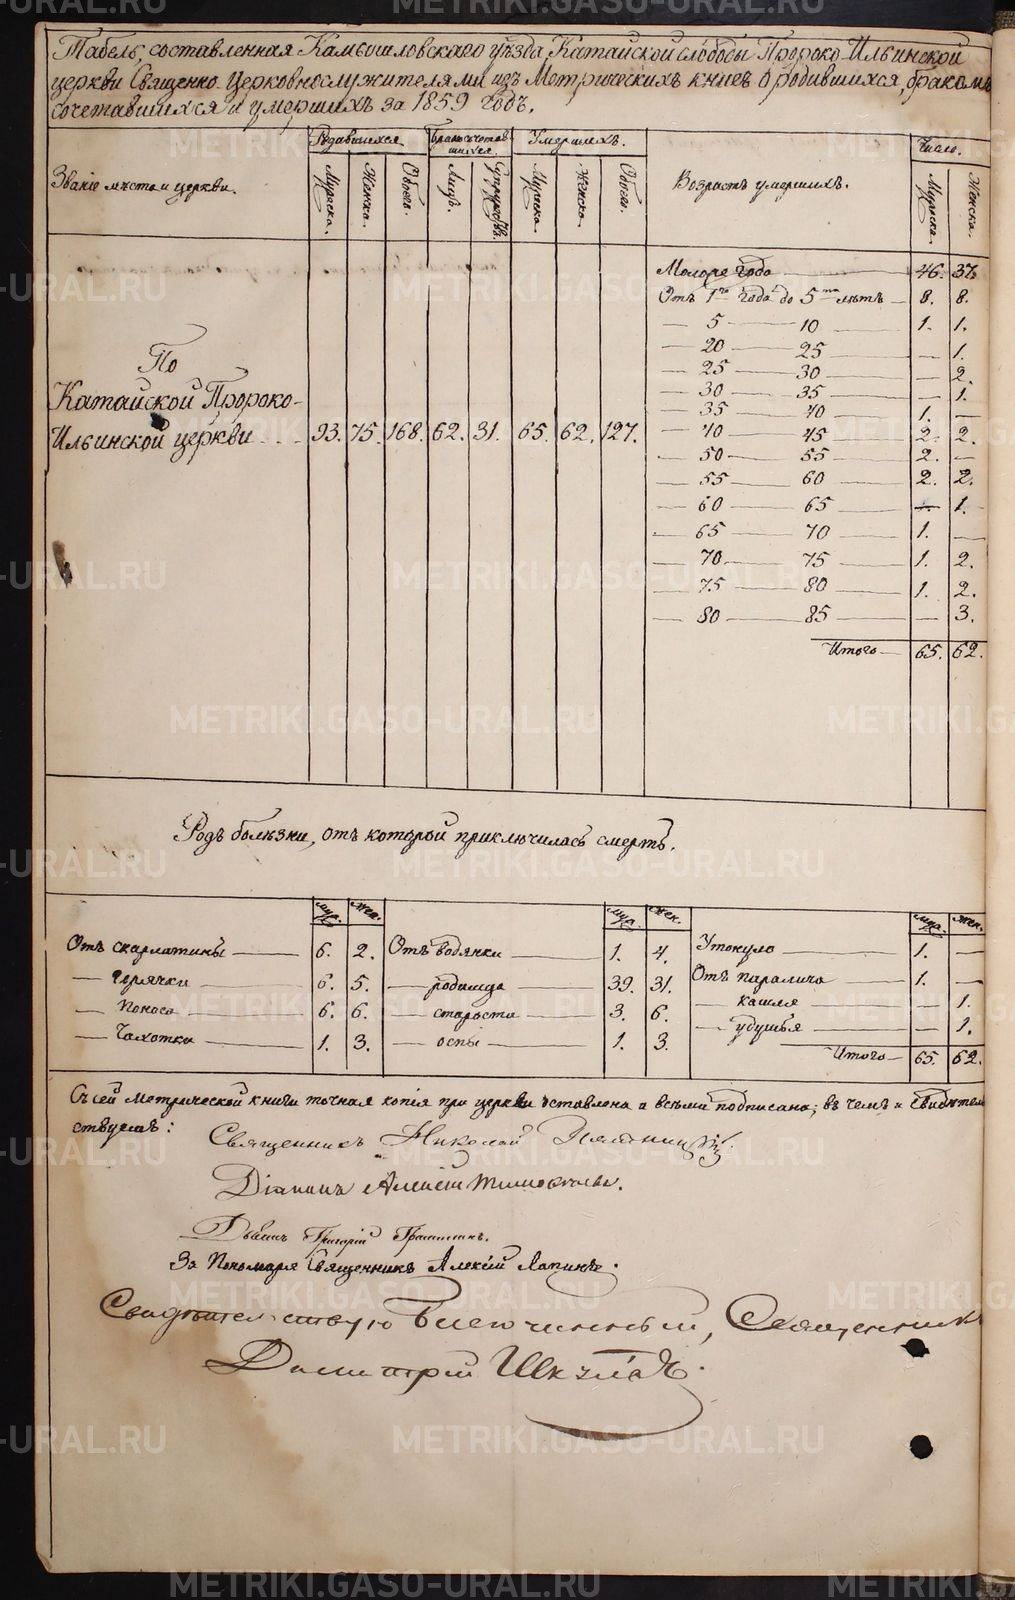 Табель, составленная Камышловскаго уѣзда Катайской слободы Пророко-Ильинской
церкви Священно-Церковнослужителями изъ Метрическихъ книгъ о родившихся, бракомъ
сочетавшихся и умершихъ за 1859 годъ.
Званіе мѣста и церкви.
Родившихся.
Бракосочетавшихся
Умершихъ.
Возрастъ умершихъ.
Число.
Мужска. Женска. Обоего. Лицъ. Супружествъ. Мужска. Женска. Обоего. Мужска. Женска.
По
Катайской Пророко-
Ильинской церкви 93. 75. 168. 62. 31. 65. 62. 127.
Моложе года 46. 37.
Отъ 1го года до 5ти лѣтъ 8. 8.
— 5 — 10 — 1. 1.
— 20 — 25 — — 1.
— 25 — 30 — — 2.
— 30 — 35 — — 1.
— 35 — 40 — 1. —
— 40 — 45 2. 2.
— 50 — 55 2. —
— 55 — 60 2. 2.
— 60 — 65 — — 1.
— 65 — 70 — 1. —
— 70 — 75 — 1. 2.
— 75 — 80 — 1. 2.
— 80 — 85 — — 3.
Итого — 65. 62.
Родъ болѣзни, отъ которой приключилась смерть.
муж. жен. муж. жен. муж. жен.
Отъ скарлатины — 6. 2. Отъ водянки — 1. 4. Утонуло — 1. —
— горячки — 6. 5. — родимца — 39. 31. Отъ паралича — 1. —
— поноса — 6. 6. — старости — 3. 6. — кашля — — 1.
— Чахотки — 1. 3. — оспы — 1. 3. — удушья — — 1.
Итого — 65. 62.
Съ сей Метрической книги точная копія при церкви оставлена и всѣми подписана; въ чемъ и Свидѣтель
ствуемъ:
Священникъ Николай
Діаконъ Алексѣй
Григорій
За Пономаря Священникъ Алексѣй Лапинъ.
Свидѣтельствую Благочинный, Священникъ
Димитрій
METRIKI.GASO-URAL.RU